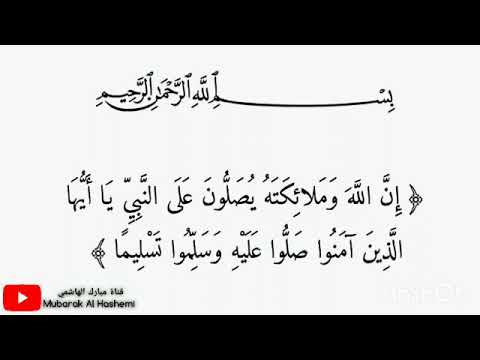 بِسْمِ اللَّهِ الرَّحْمَٰنِ الرَّحِيمِ
﴿ إِنَّ اللَّهَ وَمَلَائِكَتَهُ يُصَلُّونَ عَلَى النَّبِيِّ يَا أَيُّهَا
الَّذِينَ آمَنُوا صَلُّوا عَلَيْهِ وَسَلِّمُوا تَسْلِيمًا ﴾
قناة مبارك الهاشمي
Mubarak Al Hashemi